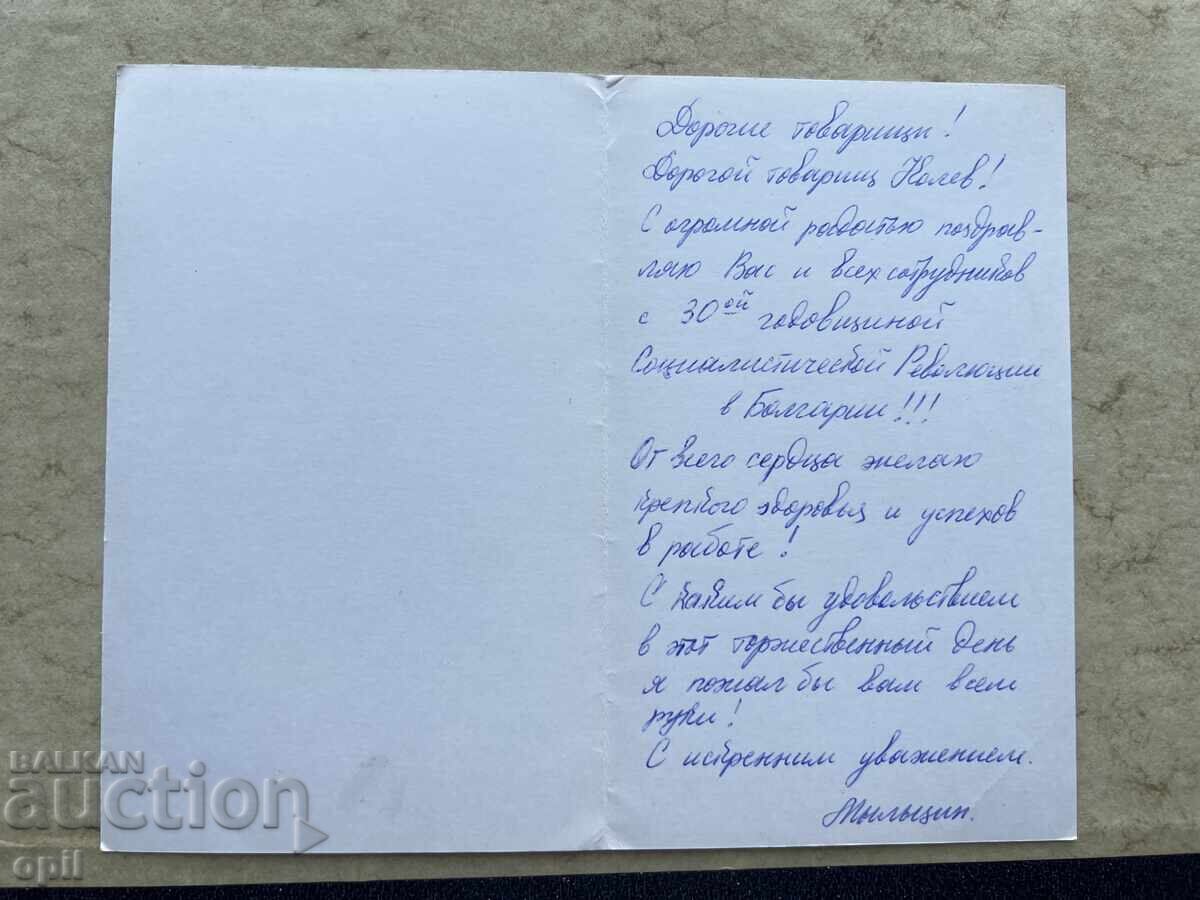 Дорогие товарищи!
Дорогой товарищ Колев!
С огромной радостью поздрав-
ляю Вас и всех сотрудников
с 30ой годовщиной
Социалистической Революции
в Болгарии!!!
От всего сердца желаю
крепкого здоровья и успехов
в работе!
С каким бы удовольствием
в этот торжественный день
я пожал бы вам всем
руки!
С искренним уважением.
BALKAN
auction
opil